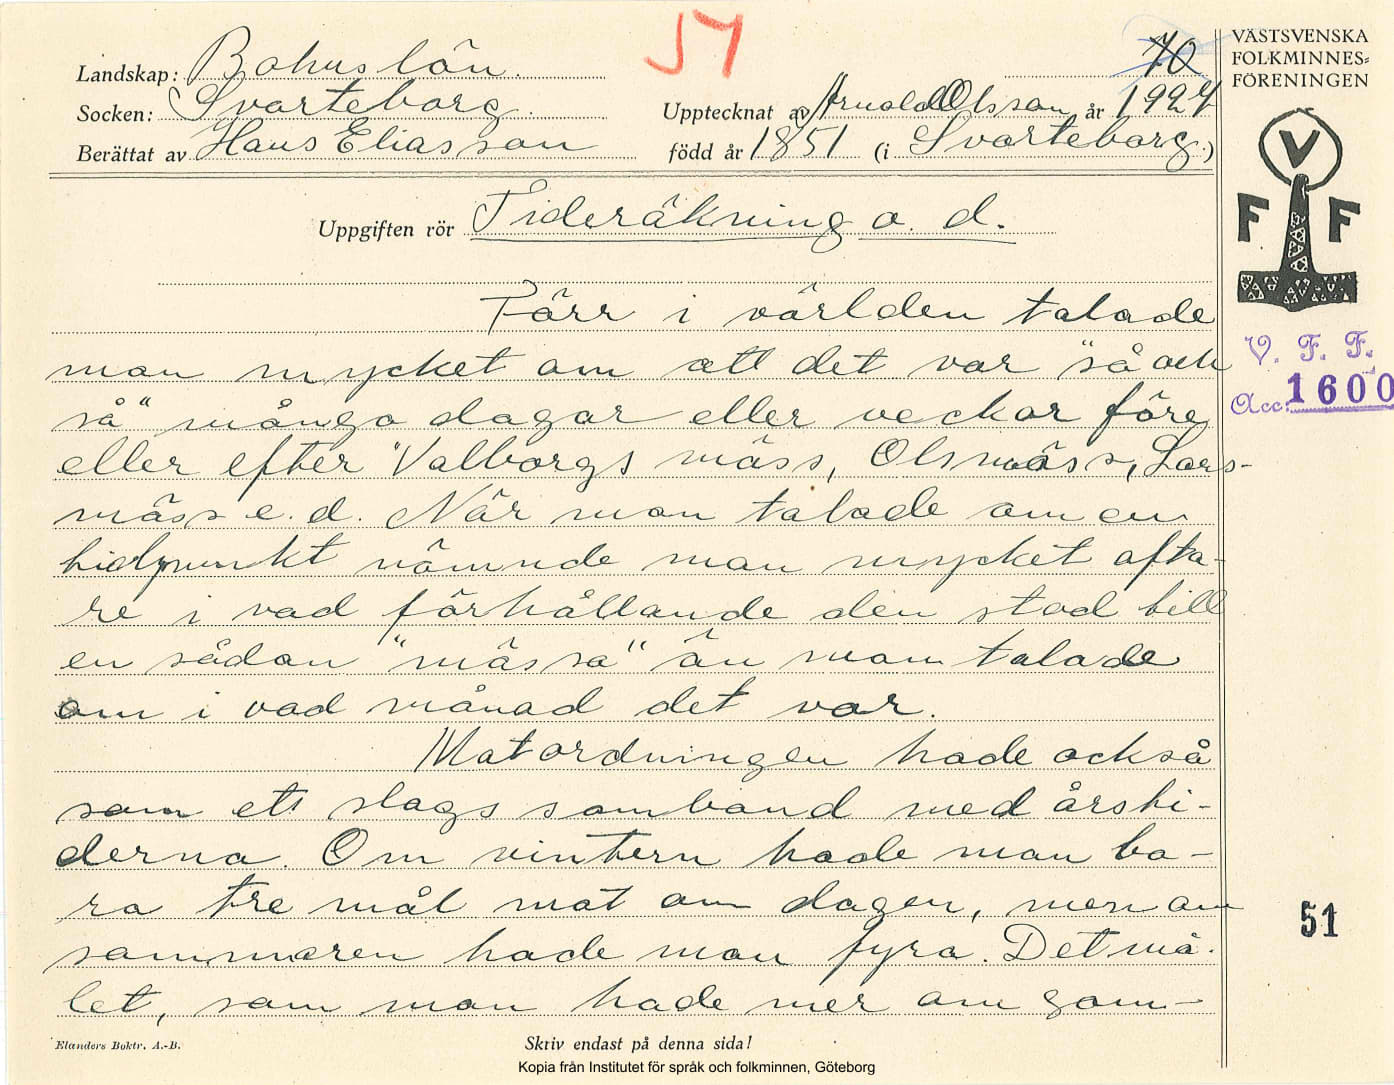 54
70
VÄSTSVENSKA
FOLKMINNES=
FÖRENINGEN
Landskap: Bohuslän.
Socken: Svarteborg.
Upptecknat av Arnold Olsson år 1927
Berättat av Hans Eliasson
född år 1851 (i Svarteborg.)
V
F F
Uppgiften rör Tideräkning o. d.
Förr i världen talade
man mycket om att det var "så och
så" många dagar eller veckor före
eller efter Valborgs mäss, Olsmäss, Lars-
mäss e. d. När man talade om en
tidpunkt nämnde man mycket ofta-
re i vad förhållande den stod till
en sådan "mässa" än man talade
om i vad månad det var.
Matordningen hade också
som ett slags samband med årsti-
derna. Om vintern hade man ba-
ra tre mål mat om dagen, men om
sommaren hade man fyra. Det må-
let, som man hade mer om som-
V. F. F.
Acc: 1600
51
Elanders Boktr. A.-B.
Skriv endast på denna sida!
Kopia från Institutet för språk och folkminnen, Göteborg